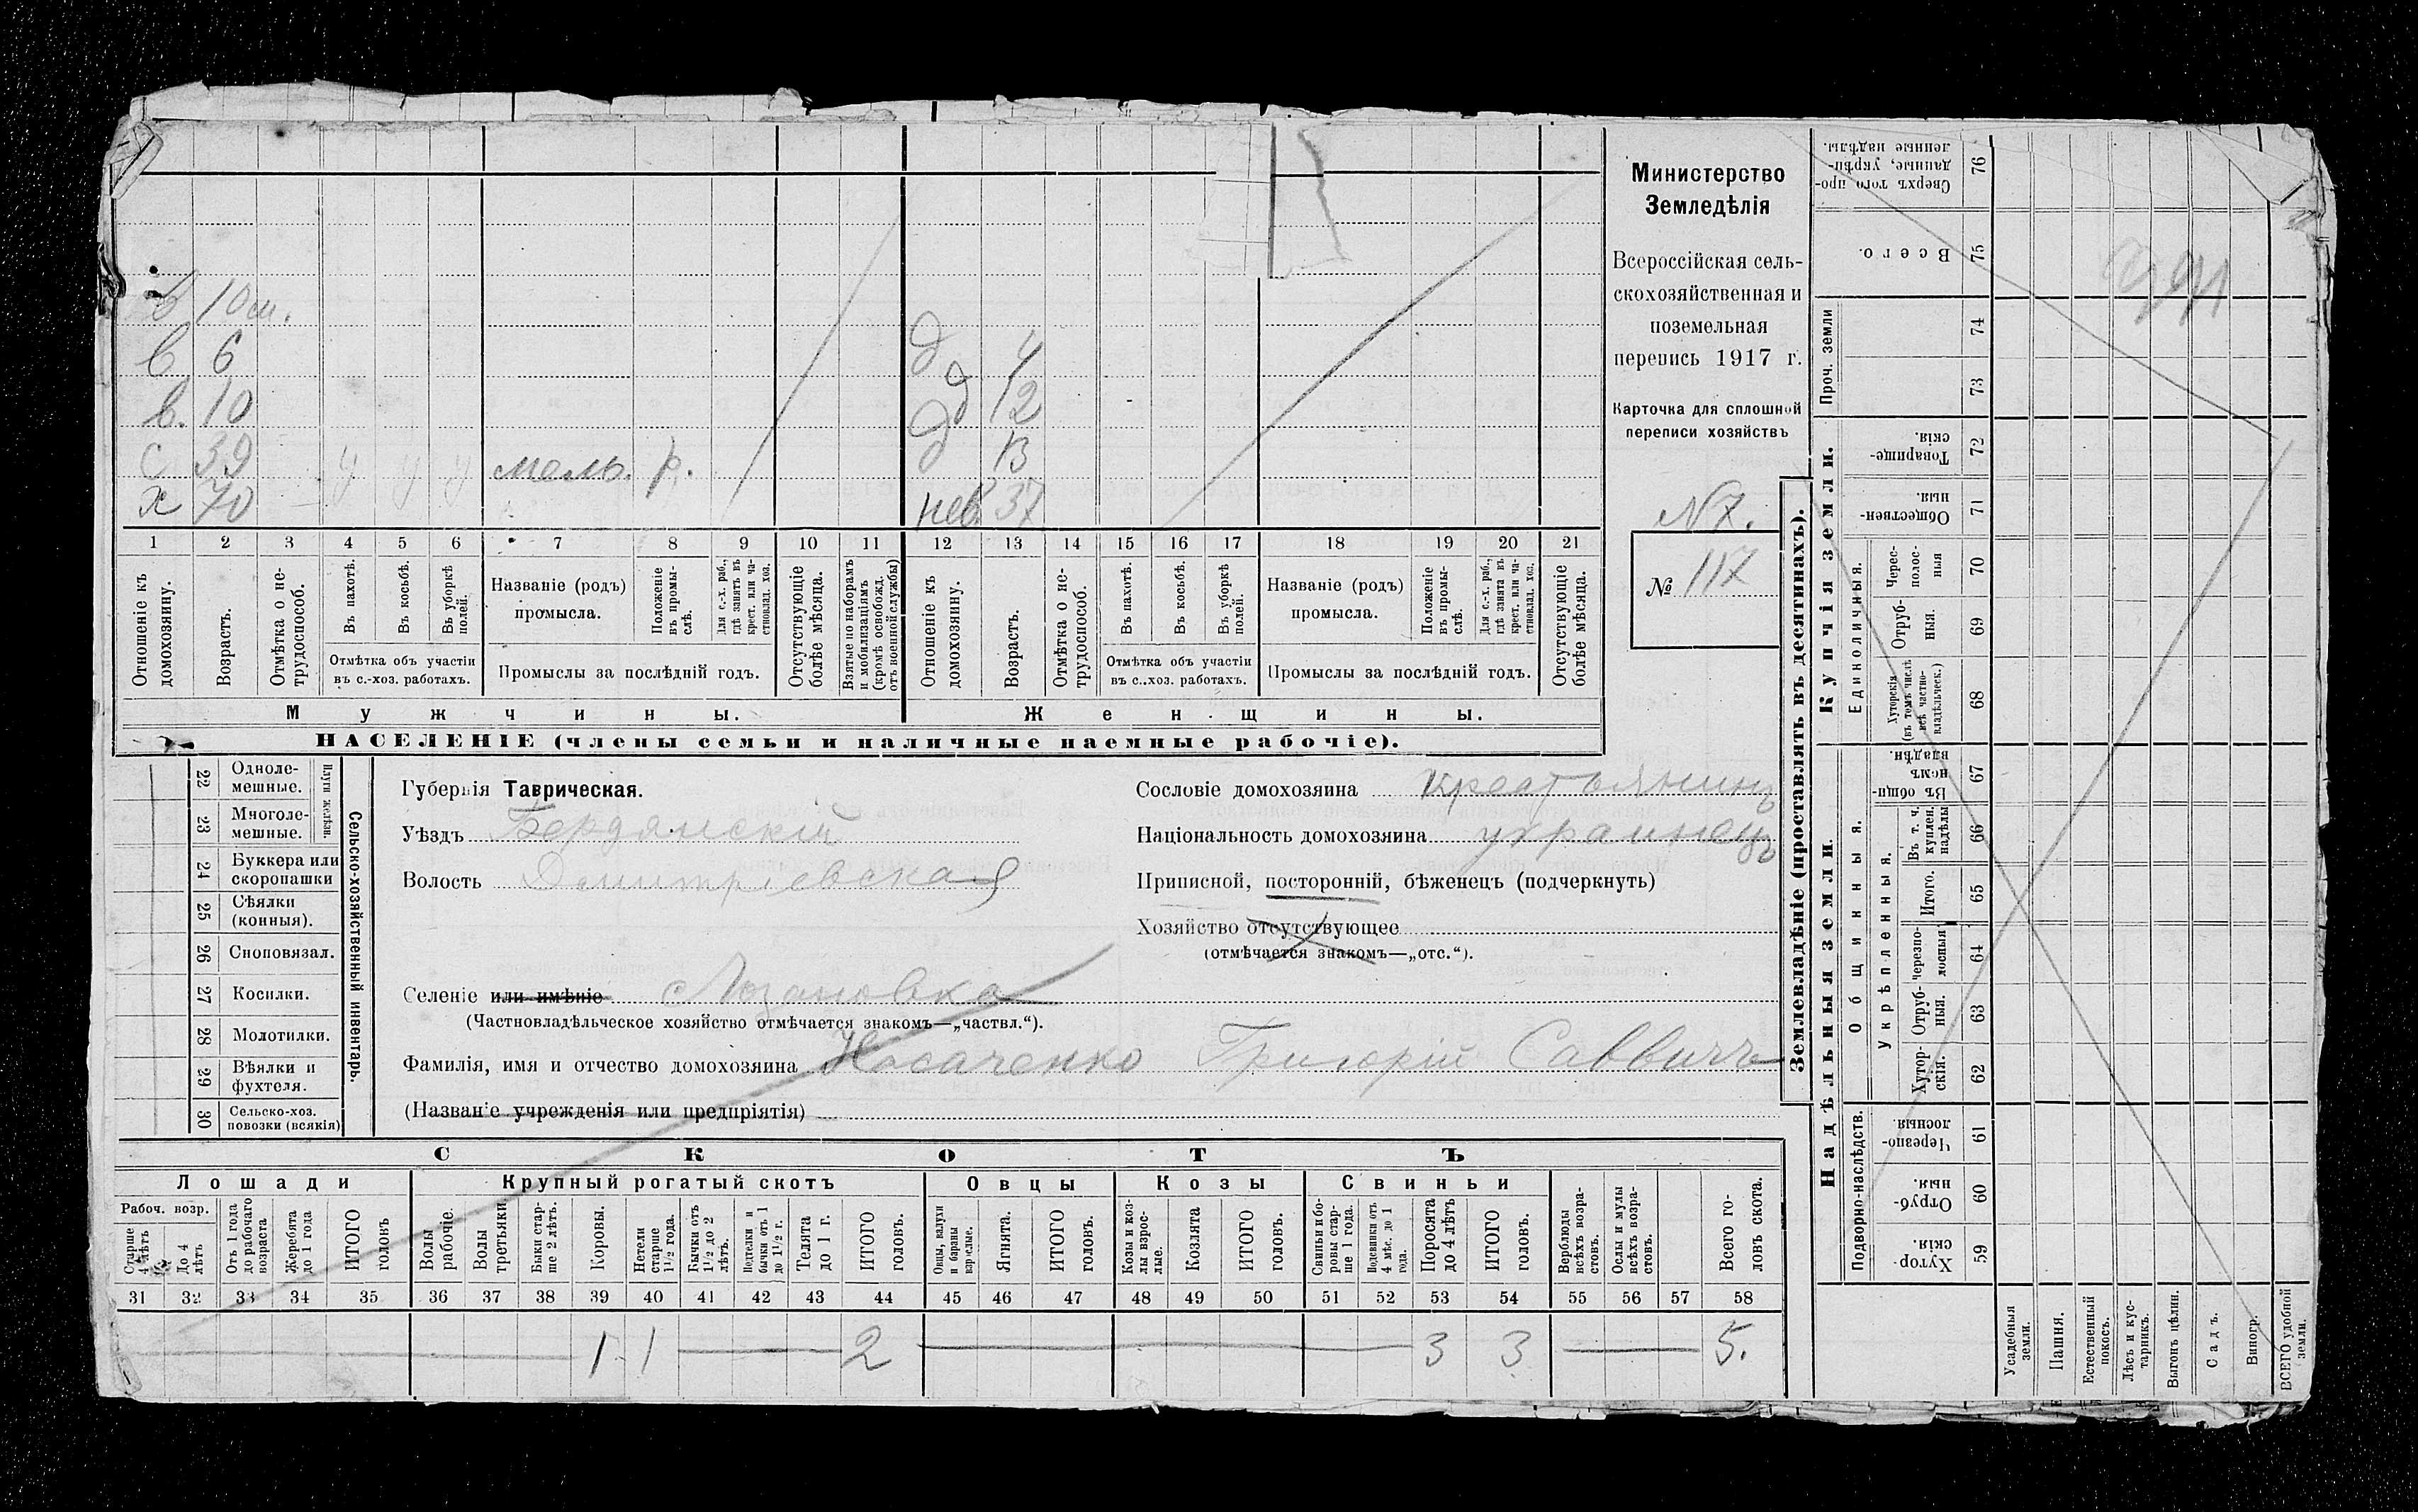 в 10 м.
в 6
в. 10
с 39 у у у мель. р.
х 70
д 4
д 12
д 13
нев. 37
1 2 3 4 5 6 7 8 9 10 11 12 13 14 15 16 17 18 19 20 21
Отношеніе къ домохозяину.
Возрастъ.
Отмѣтка о не-трудоспособ.
Въ пахотѣ.
Въ косьбѣ.
Въ уборкѣ полей.
Отмѣтка объ участіи
въ с.-хоз. работахъ.
Названіе (родъ)
промысла.
Положеніе въ промы-слѣ.
Для с.-х. раб., гдѣ занятъ въ крест. или ча-стновлад. хоз.
Промыслы за послѣдній годъ.
Отсутствующіе болѣе мѣсяца.
Взятые по наборамъ и мобилизаціямъ (кромѣ освобожд. отъ военной службы)
Отношеніе къ домохозяину.
Возрастъ.
Отмѣтка о не-трудоспособ.
Въ пахотѣ.
Въ косьбѣ.
Въ уборкѣ полей.
Отмѣтка объ участіи
въ с..хоз. работахъ.
Названіе (родъ)
промысла.
Положеніе въ промы-слѣ.
Для с.-х. раб., гдѣ занята въ крест. или ча-стновлад. хоз.
Промыслы за послѣдній годъ.
Отсутствующіе болѣе мѣсяца.
Мужчины.
Женщины.
НАСЕЛЕНІЕ (члены семьи и наличные наемные рабочіе).
Министерство
Земледѣлія
Всероссійская сель-
скохозяйственная и
поземельная
перепись 1917 г.
Карточка для сплошной
переписи хозяйствъ
N 7.
№ 117
22 Одноле-мешные.
23 Многоле-мешные.
Плуги желѣзн.
24 Буккера или скоропашки
25 Сѣялки (конныя).
26 Сноповязал.
27 Косилки.
28 Молотилки.
29 Вѣялки и фухтеля.
30 Сельско-хоз. повозки (всякія)
Сельско-хозяйственный инвентарь.
Губернія Таврическая.
Уѣздъ Бердянскій
Волость Дмитріевская
Селеніе или имѣніе Лозановка
(Частновладѣльческое хозяйство отмѣчается знакомъ—„частвл.“).
Фамилія, имя и отчество домохозяина Носаченко Григорій Саввичъ
(Названіе учрежденія или предпріятія)
Сословіе домохозяина крестьянинъ
Національность домохозяина украинецъ
Приписной, посторонній, бѣженецъ (подчеркнуть)
Хозяйство отсутствующее
(отмѣчается знакомъ—„отс.“).
СКОТЪ
Лошади
Крупный рогатый скотъ
Овцы
Козы
Свиньи
Рабоч. возр.
Старше 4 лѣтъ
До 4 лѣтъ
Отъ 1 года до рабочаго возраста
Жеребята до 1 года
ИТОГО головъ
Волы рабочіе.
Волы третьяки
Быки стар-ше 2 лѣтъ.
Коровы.
Нетели старше 1½ года.
Бычки отъ 1½ до 2 лѣтъ.
Подтелки и бычки отъ 1 до 1½ г.
Телята до 1 г.
ИТОГО головъ.
Овцы, валухи и бараны взрослые.
Ягнята.
ИТОГО головъ.
Козы и коз-лы взрос-лые.
Козлята
ИТОГО головъ.
Свиньи и бо-ровы стар-ше 1 года.
Подсвинки отъ 4 мѣс. до 1 года.
Поросята до 4 лѣтъ
ИТОГО головъ.
Верблюды всѣхъ возра-стовъ.
Ослы и мулы всѣхъ возра-стовъ.
Всего го-ловъ скота.
31 32 33 34 35 36 37 38 39 40 41 42 43 44 45 46 47 48 49 50 51 52 53 54 55 56 57 58
1 1 2 3 3 5.
Землевладѣніе (проставлять въ десятинахъ).
Купчія земли.
Надѣльныя земли.
Сверхъ того про-данные, укрѣп-ленные надѣлы. 76
Всего. 75
Проч. земли 74 73
Товарище-скія. 72
Обществен-ныя. 71
Единоличныя.
Черес-полос-ныя 70
Отруб-ныя. 69
Хуторскія (въ томъ числѣ всѣ частно-владѣльческ.) 68
Общинныя.
Въ общи-номъ владѣн. 67
Укрѣпленныя.
Въ т. ч. куплен. надѣлы 66
Итого. 65
Черезпо-лосныя 64
Отруб-ныя. 63
Хутор-скія. 62
Подворно-наслѣдств.
Черезпо-лосныя. 61
Отруб-ныя. 60
Хутор-скія. 59
Усадебныя земли.
Пашня.
Естественный покосъ.
Лѣсъ и кус-тарникъ.
Выгонъ цѣлин.
Садъ.
Виногр.
ВСЕГО удобной земли.